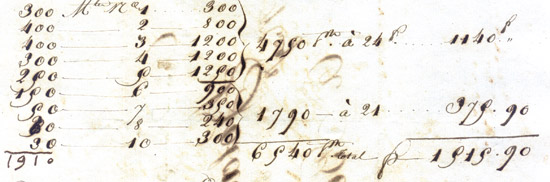 300 Nº 1 300
400 2 800
400 3 1200 4750 à 24 1140
300 4 1200
250 5 1250
150 6 900
50 7 350 1790 à 21 375.90
30 8 240
30 10 300 6540 1515.90
1910